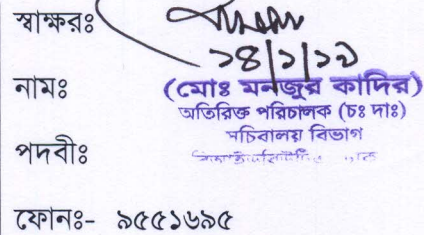 স্বাক্ষরঃ
১৪/১/১৯
নামঃ (মোঃ মনজুর কাদির)
অতিরিক্ত পরিচালক (চঃ দাঃ)
সচিবালয় বিভাগ
পদবীঃ
ফোনঃ- ৯৫৫১৬৯৫